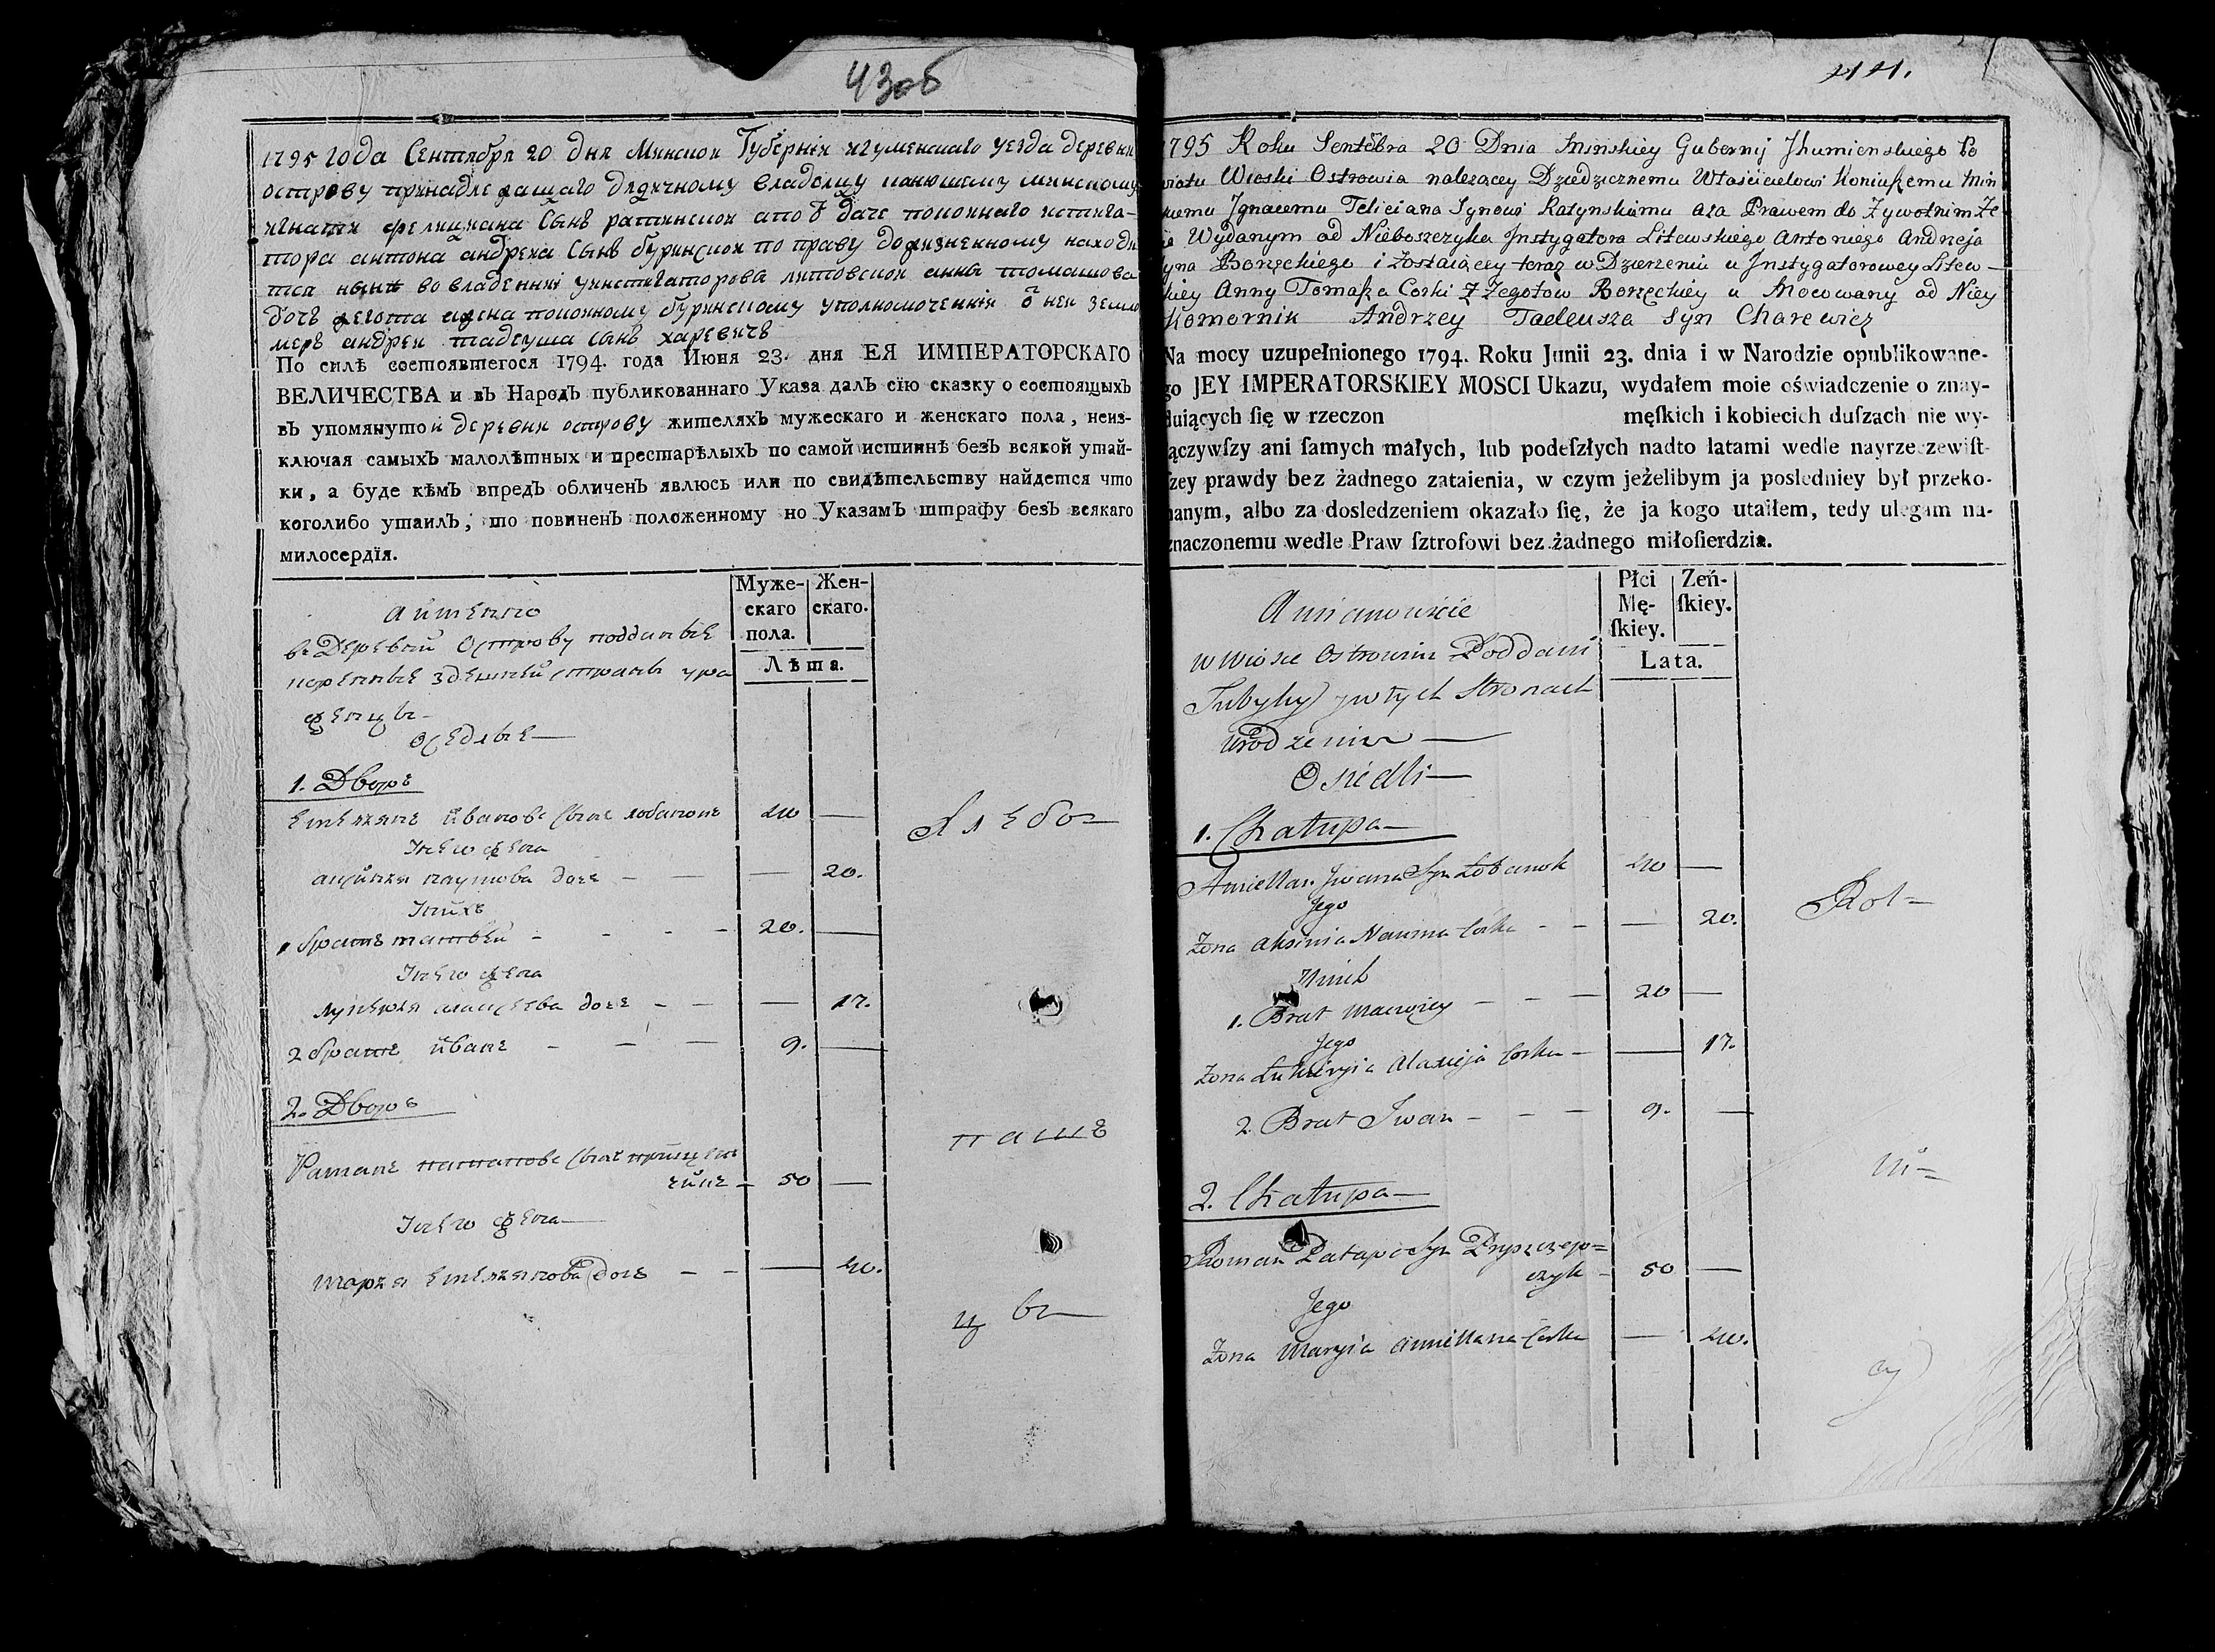 43об
1795 года Сентября 20 дня Минской Губернии игуменского уезда деревни
острову принадлежащаго дедичному владелцу конюшему минскому
игнатия фелициана Сынъ ратинской апо даче покойнаго
тора антона андрея Сынъ буринской по праву доживненному находи
тся ныне во владении уинстигаторова литовской анны томашова
дочъ жегота жена покойному буринскому уполномочення от ней земле
меръ андрей тадеуша сынъ харевичъ
По силѣ состоявшегося 1794. года Июня 23. дня ЕЯ ИМПЕРАТОРСКАГО
ВЕЛИЧЕСТВА и въ Народъ публикованнаго Указа далъ сїю сказку о состоящыхъ
въ упомянутой деревни острову жителяхъ мужескаго и женскаго пола, неиз-
ключая самыхъ малолѣтных и престарѣлыхъ по самой истиннѣ безъ всякой утай-
ки, а буде кѣмъ впредъ обличенъ явлюсь или по свидѣтельству найдется что
коголибо утаилъ, то повиненъ положенному по Указамъ штрафу безъ всякаго
милосердїя.
Муже-скаго пола. Жен-скаго.
Лѣта.
аименно
въ Деревни Острову подданые
коренные здешней страны уро
женцы
Оседлые
1. Дворъ
Емельянъ ивановъ сынъ лобанокъ 40 —
Июго жена
аксиння наумова дочъ — — — 20.
Ихъ
1 братъ матвей - - - - 20. —
Июго жена
лукерья алексеева дочъ — — — 17.
2 братъ иванъ — — — 9. —
2. Дворъ
Раманъ патаповъ сынъ прищепъ
чикъ — 50 —
Июго жена
марья Емельянова дочъ — — — 40.
Хлебо=
паше
цы
44.
1795 Roku Sentebra 20 Dnia Minskiey Gubernij Jhumienskiego Po
wiatu Wioski Ostrowia należącey Dziedzicznemu Właścicielowi Koniuszemu Min
skiemu Jgnacemu Feliciana Synowi Ratynskiemu a za Prawem do Żywotnim Ze
Wydanym od Nieboszczyka Jnstygatora Litewskiego Antoniego Andrzeja
Syna Borzęckiego i Zostaiącey teraz w Dzierzeniu u Jnstygatorowey Litew
skiey Anny Tomasza Corki z Zegotow Borzęckiey u Mocowany od Niey
Komornik Andrzey Tadeusza Syn Charewicz
Na mocy uzupełnionego 1794. Roku Junii 23. dnia i w Narodzie opublikowane-
go JEY IMPERATORSKIEY MOSCI Ukazu, wydałem moie oświadczenie o znay-
duiących ſię w rzeczon męſkich i kobiecich duſzach nie wy-
łączywſzy ani ſamych małych, lub podeſzłych nadto latami wedle nayrzeczewiſt-
ſzey prawdy bez żadnego zataienia, w czym jeżelibym ja posledniey był przeko-
nanym, albo za dosledzeniem okazało ſię, że ja kogo utaiłem, tedy ulegam na-
znaczonemu wedle Praw ſztrofowi bez żadnego miłoſierdzia.
Płci Mę-ſkiey. Zeń-ſkiey.
Lata.
A mianowicie
w Wiosce Ostrowiu Poddani
Tubylcy y w tych Stronach
urodzeni —
Osiedli —
1. Chałupa —
Amiellan Jwana Syn Łobanok 40 —
Jego
Zona Aksinia Nauma Corka - - — 20.
Onich
1. Brat Maciey — — — 20 —
Jego
Zona Łukiryia Alaxieja Corka — — 17.
2. Brat Jwan — — — 9. —
2. Chałupa —
Roman Patapa Syn Pryszczep=
czyk — 50 —
Jego
Zona Maryia Amiellana Corka — 40.
Rol=
ni=
cy